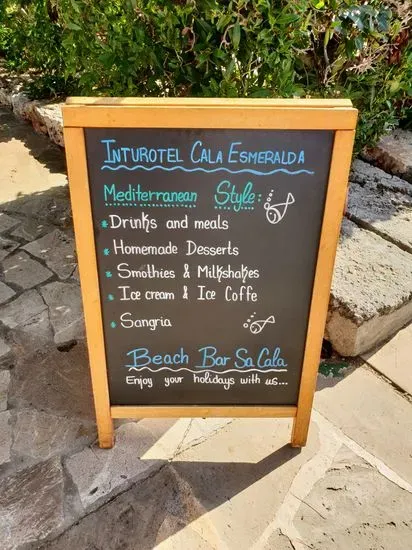 Inturotel Cala Esmeralda
Mediterranean Style:
* Drinks and meals
* Homemade Desserts
* Smothies & Milkshakes
* Ice cream & Ice Coffe
* Sangria
Beach Bar Sa Cala
Enjoy your holidays with us...